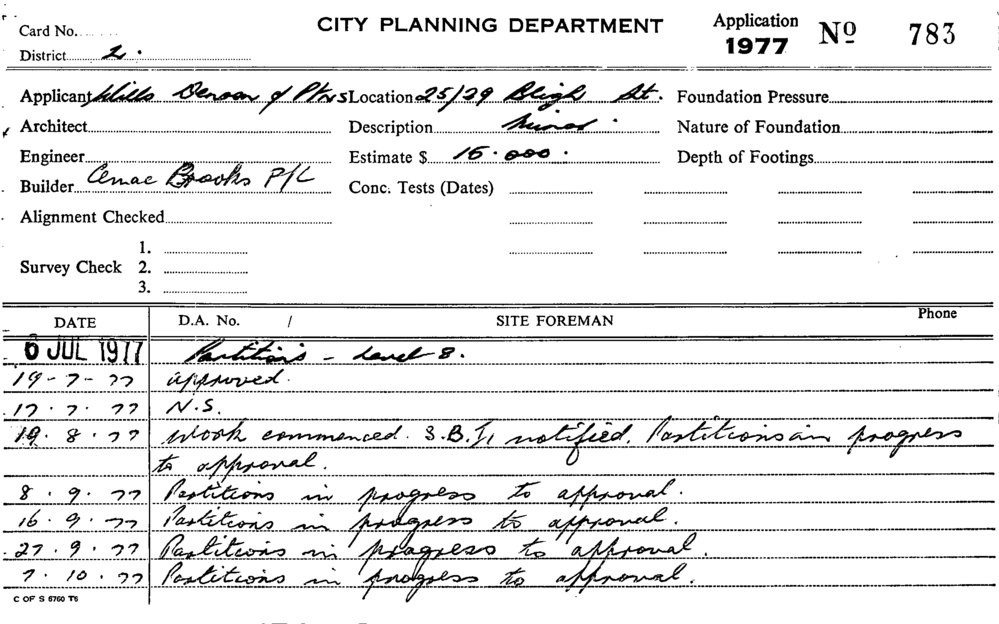 CITY PLANNING DEPARTMENT
Application 1977 Nº 783
Card No.
District 2.
Applicant Wills Denoon & Ptnrs Location 25/29 Bligh St. Foundation Pressure
Architect Description Minor Nature of Foundation
Engineer Estimate $ 15.000. Depth of Footings
Builder Brooks P/L Conc. Tests (Dates)
Alignment Checked
Survey Check 1.
2.
3.
DATE D.A. No. / SITE FOREMAN Phone
6 JUL 1977 Partitions - Level 8.
19-7-77 approved.
17.7.77 N.S.
19.8.77 Work commenced. S.B.I. notified. Partitions in progress
to approval.
8.9.77 Partitions in progress to approval.
16.9.77 Partitions in progress to approval.
27.9.77 Partitions in progress to approval.
7.10.77 Partitions in progress to approval.
C OF S 6760 T6